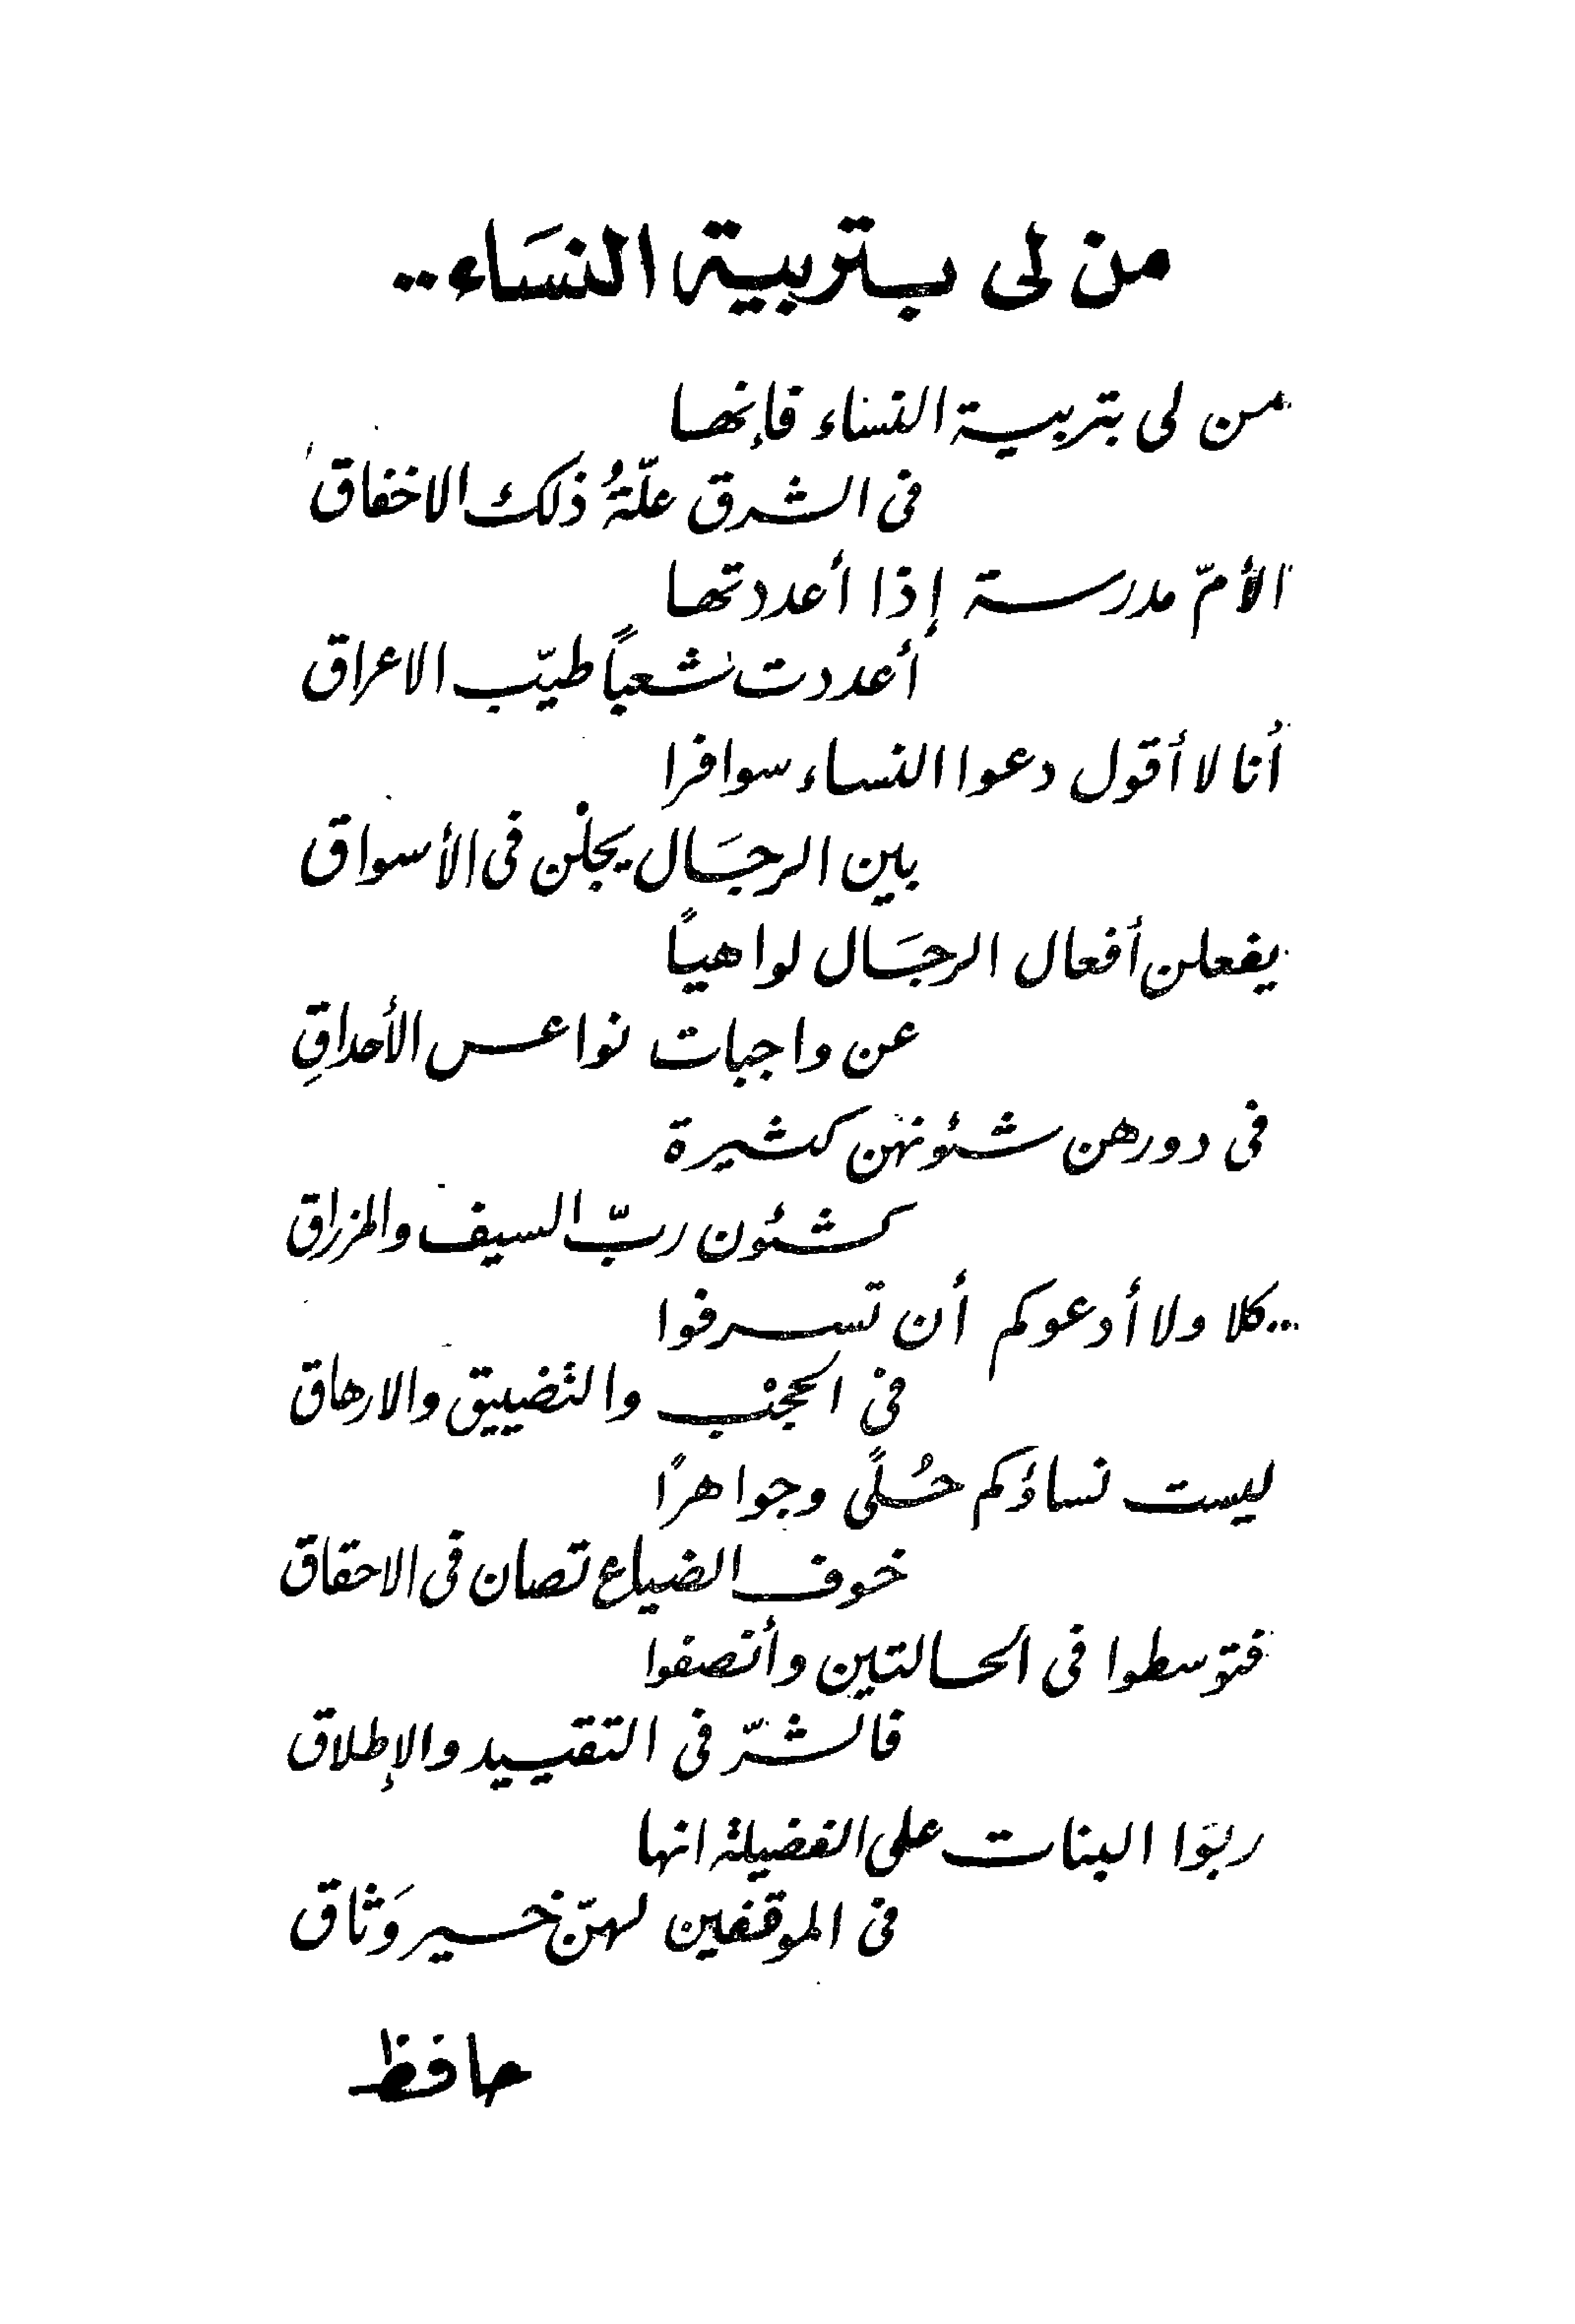 من لى بتربية النسَاء..
من لى بتربية النساء فإنها
فى الشرق علّةُ ذلك الاخفاق
الأمّ مدرسة إذا أعددتها
أعددت شعباً طيّب الاعراق
أنا لا أقول دعوا النساء سوافرا
بين الرجَال يجلْن فى الأسواق
يفعلن أفعال الرجَال لواهياً
عن واجبات نواعس الأحداقِ
فى دورهن شئونهن كثيرة
كشئون ربّ السيف والمزراق
..كلا ولا أدعوكم أن تسرفوا
فى الحجْب والتضييق والارهاق
ليست نساؤكم حُلًى وجواهرًا
خوف الضياع تصان فى الاحقاق
فتوسطوا فى الحالتين وأنصفوا
فالشرّ فى التقييد والإطلاق
ربوَا البنات على الفضيلة انها
فى الموقفين لهنّ خير وَثاق
حافظ